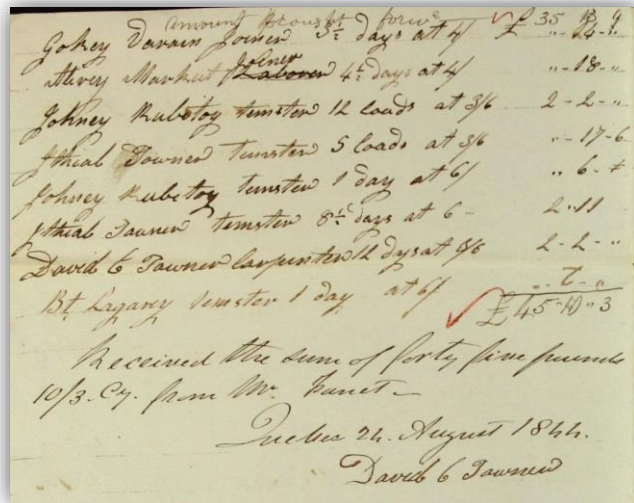 amount brought forwd £ 35 18 9
Gokey Davain Joiner 3½ days at 4/ " - 14 - "
Market Joiner 4½ days at 4/ " - 18 - "
Johney Rubetoy temster 12 loads at 3/6 2 - 2 - "
Ithial Towner temster 5 loads at 3/6 " - 17 - 6
Johney Rubetoy temster 1 day at 6/ " 6 -
Ithial Towner temster 8½ days at 6 - 2 " 11
David C Towner Carpenter 12 dys at 3/6 2 - 2 - "
Bt. Lagarey temster 1 day at 6/
£ 45 - 10 " 3
Received the sum of forty five pounds
10/3. Cy. from Mr. Fanet -
Quebec 24. August 1844.
David C Towner